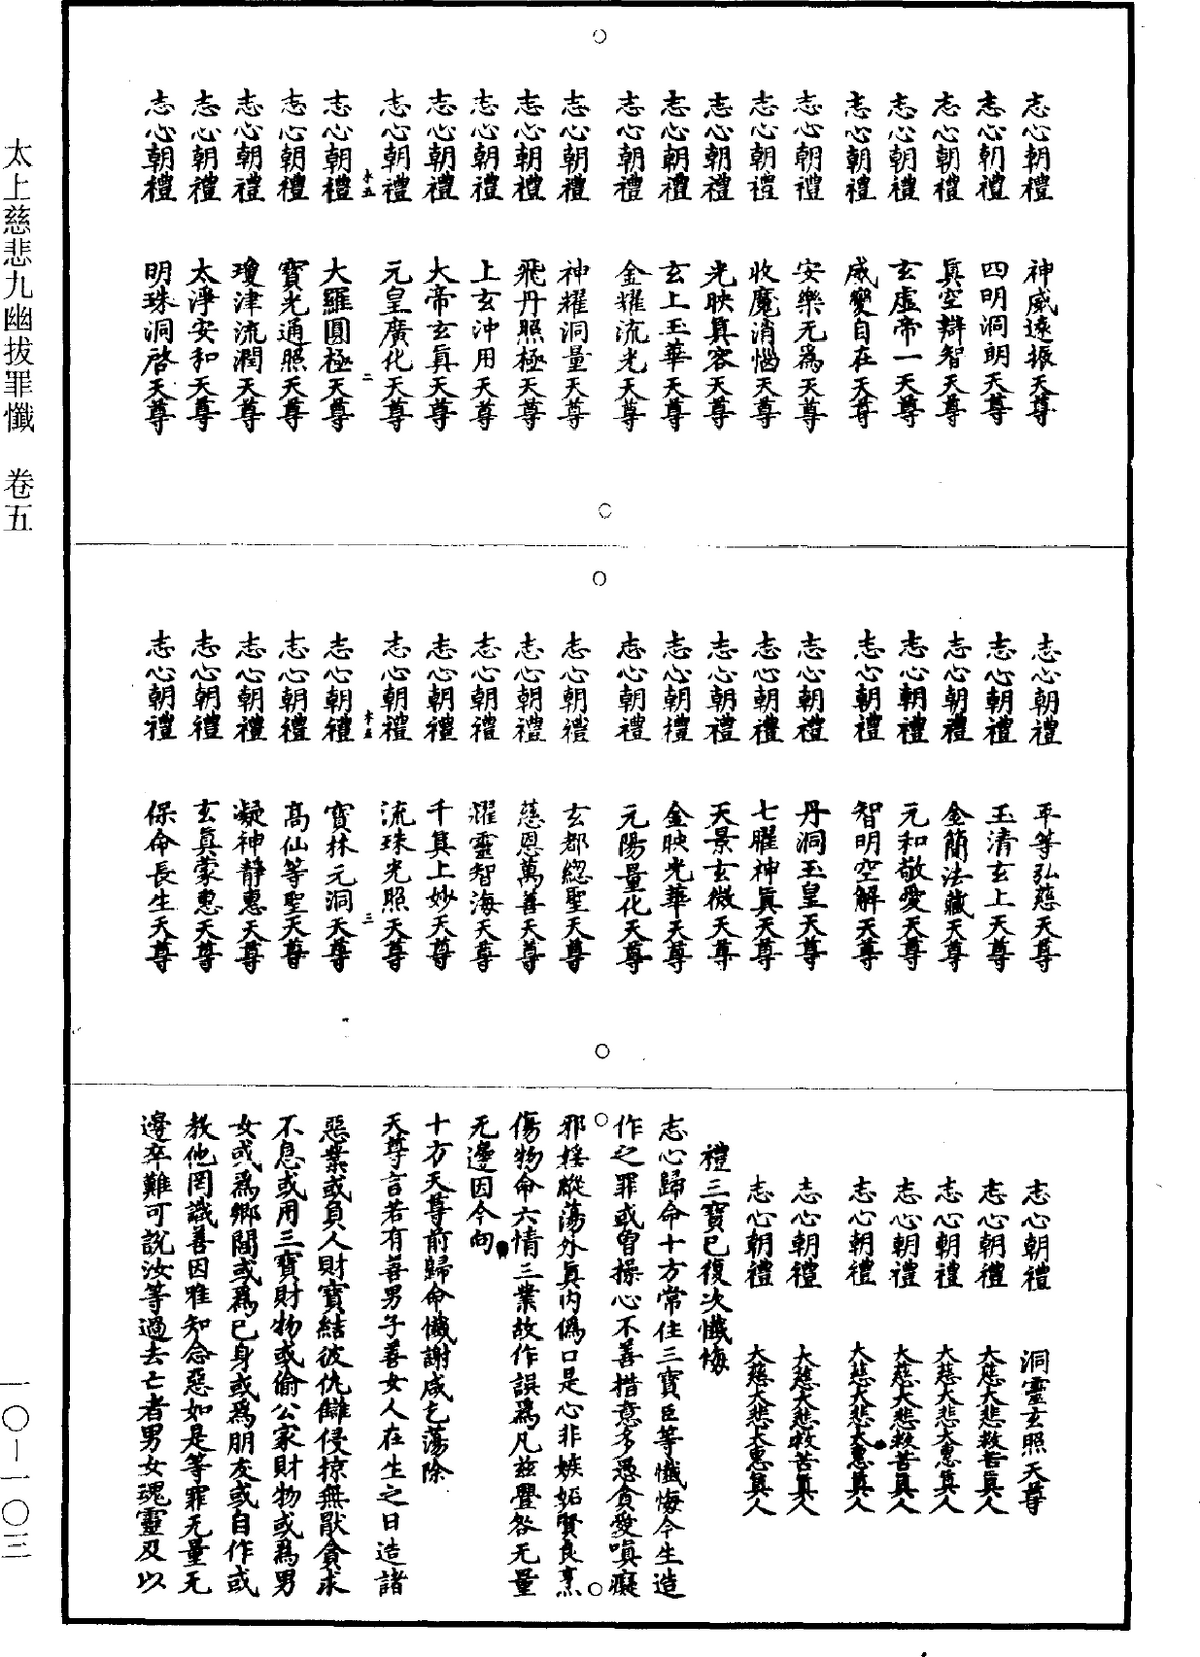 太上慈悲九幽拔罪懺　卷五
一〇—一〇三
志心朝禮　神威遠振天尊
志心朝禮　四明洞朗天尊
志心朝禮　真空辯智天尊
志心朝禮　玄虛帝一天尊
志心朝禮　威變自在天尊
志心朝禮　安樂无為天尊
志心朝禮　收魔消惱天尊
志心朝禮　光映真容天尊
志心朝禮　玄上玉華天尊
志心朝禮　金耀流光天尊
志心朝禮　神耀洞量天尊
志心朝禮　飛丹照極天尊
志心朝禮　上玄沖用天尊
志心朝禮　大帝玄真天尊
志心朝禮　元皇廣化天尊
志心朝禮　大羅圓極天尊
志心朝禮　寶光通照天尊
志心朝禮　瓊津流潤天尊
志心朝禮　太淨安和天尊
志心朝禮　明珠洞啓天尊
志心朝禮　平等弘慈天尊
志心朝禮　玉清玄上天尊
志心朝禮　金簡法藏天尊
志心朝禮　元和敬愛天尊
志心朝禮　智明空解天尊
志心朝禮　丹洞玉皇天尊
志心朝禮　七耀神真天尊
志心朝禮　天景玄微天尊
志心朝禮　金映光華天尊
志心朝禮　元陽量化天尊
志心朝禮　玄都緫聖天尊
志心朝禮　慈恩萬善天尊
志心朝禮　耀靈智海天尊
志心朝禮　千真上妙天尊
志心朝禮　流珠光照天尊
志心朝禮　寶林元洞天尊
志心朝禮　高仙等聖天尊
志心朝禮　凝神靜惠天尊
志心朝禮　玄真蒙惠天尊
志心朝禮　保命長生天尊
志心朝禮　洞靈玄照天尊
志心朝禮　大慈大悲救苦真人
志心朝禮　大慈大悲大惠真人
志心朝禮　大慈大悲救苦真人
志心朝禮　大慈大悲大惠真人
志心朝禮　大慈大悲救苦真人
志心朝禮　大慈大悲大惠真人
禮三寶已復次懺悔
志心歸命十方常住三寶臣等懺悔今生造
作之罪或曾操心不善措意多愚貪愛嗔癡
邪婬縱蕩外真内偽口是心非嫉妬賢良烹
傷物命六情三業故作誤為凡兹舋咎无量
无邊因今向
十方天尊前歸命懺謝咸乞蕩除
天尊言若有善男子善女人在生之日造諸
惡業或負人財寶結彼仇讎侵掠無猒貪求
不息或用三寶財物或偷公家財物或為男
女或為鄉閭或為己身或為朋友或自作或
教他罔識善因唯知念惡如是等罪无量无
邊卒難可說汝等過去亡者男女魂靈及以